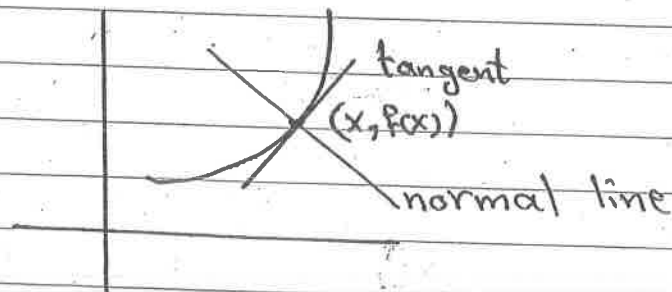 tangent
(x, f(x))
normal line